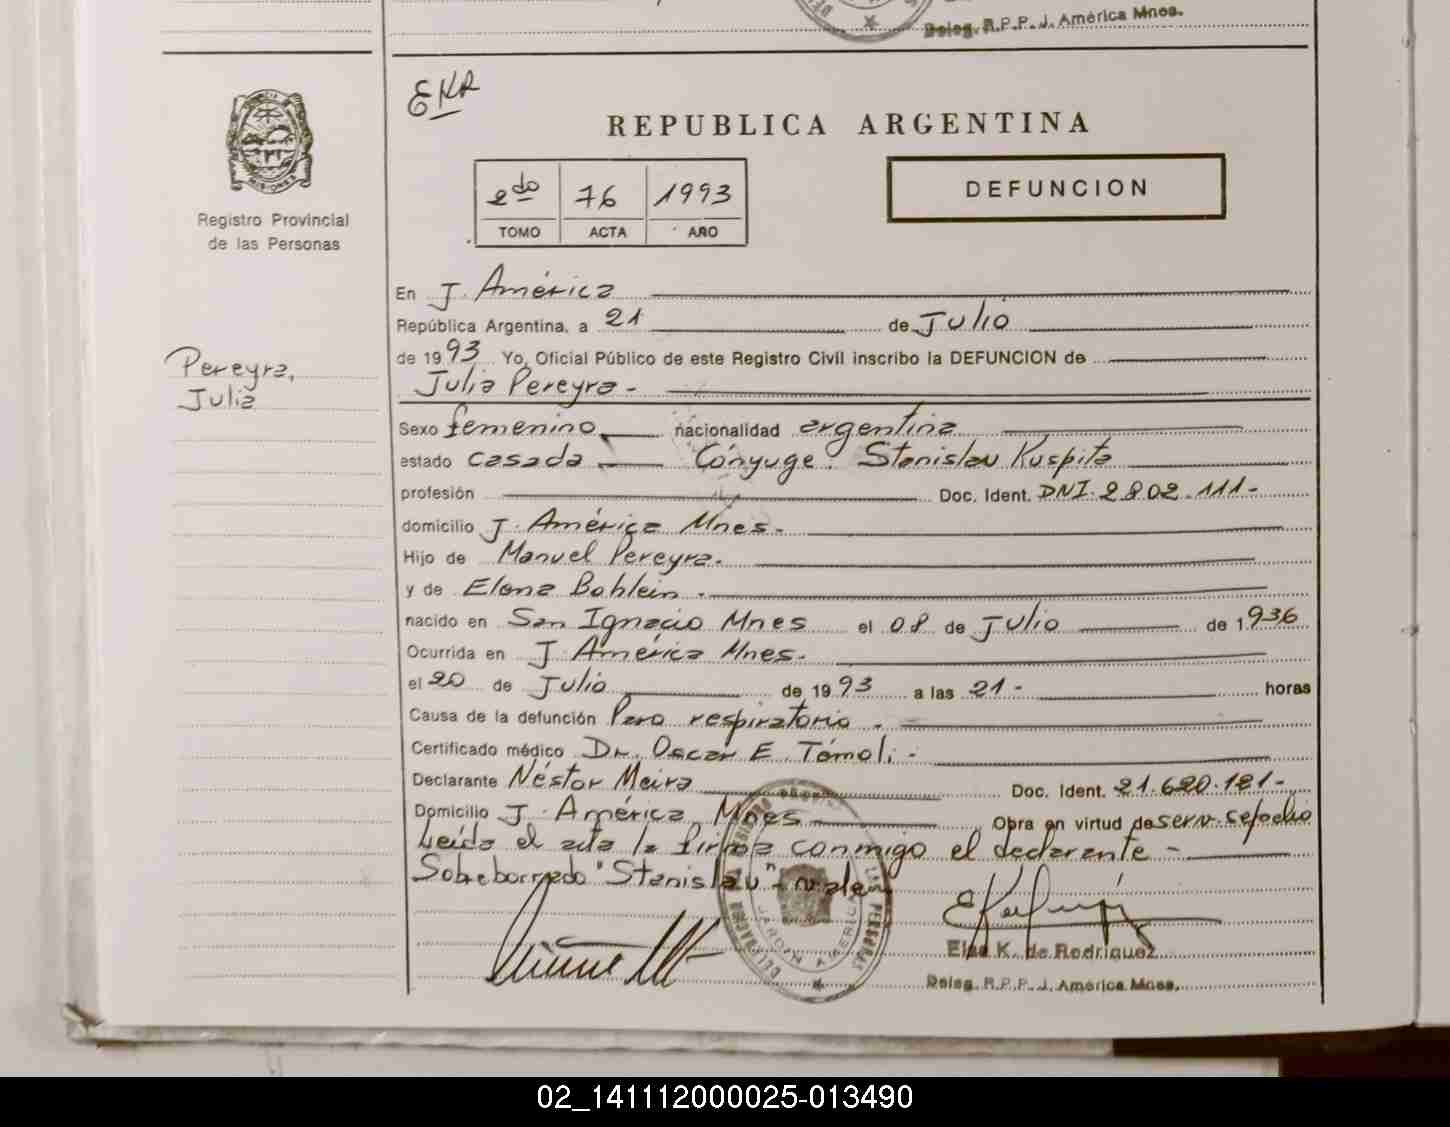 Deleg. R.P.P. J. América Mnes.
EKR
REPUBLICA ARGENTINA
2do 76 1993
TOMO ACTA AÑO
DEFUNCION
MISIONES
Registro Provincial
de las Personas
En J. América
República Argentina, a 21 de Julio
de 1993 Yo, Oficial Público de este Registro Civil inscribo la DEFUNCION de
Pereyra,
Julia
Julia Pereyra -
Sexo femenino nacionalidad argentina
estado casada Cónyuge: Stanislau Kuspita
profesión Doc. Ident. DNI. 2802.111-
domicilio J. América Mnes.
Hijo de Manuel Pereyra.
y de Elena Bahlein.
nacido en San Ignacio Mnes el 08 de Julio de 1936
Ocurrida en J. América Mnes.
el 20 de Julio de 1993 a las 21- horas
Causa de la defunción Paro respiratorio.
Certificado médico Dr. Oscar E. Tómoli.
Declarante Néstor Meira Doc. Ident. 21.620.121-
Domicilio J. América Mnes Obra en virtud de serv. sepelio
Leída el acta la firma conmigo el declarante -
Sobreborrado "Stanislau" - vale
DELEGACION REGISTRO PROVINCIAL DE LAS PERSONAS
JARDIN AMERICA
Elsa K. de Rodriguez
Deleg. R.P.P. J. América Mnes.
02_141112000025-013490